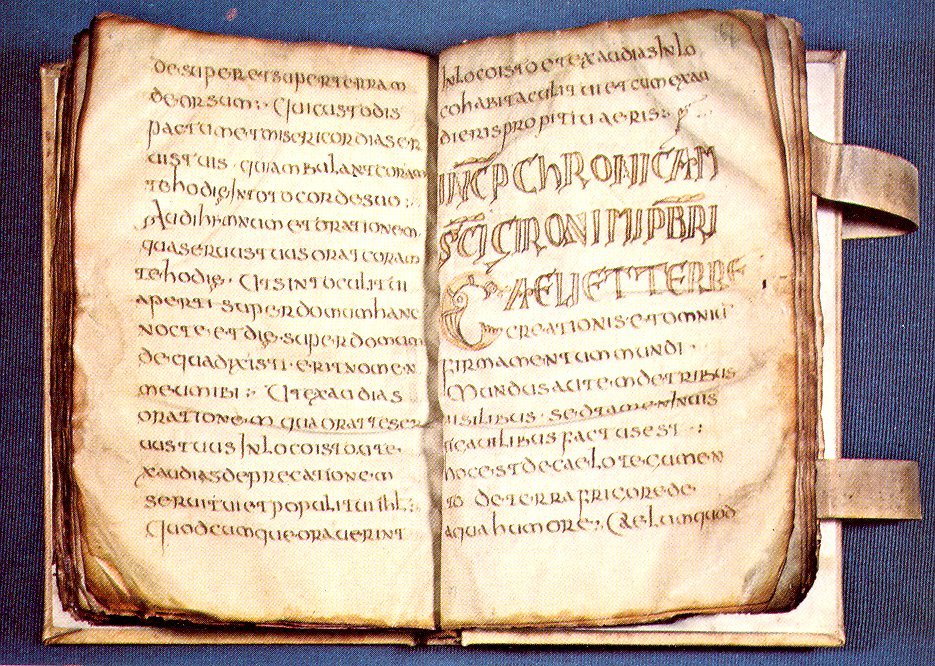 desuper et super terram
deorsum : Qui custodis
pactum et misericordia ser
uis tuis · qui ambulant coram
te hodie in toto corde suo :
Audi hymnum et orationem
qua seruus tuus orat coram
te hodie · Ut sint oculi tui
aperti super domum hanc
nocte · et die · super domum
de qua dixisti · erit nomen
meum ibi : Ut exaudias
oratione m qua orat te ser
uus tuus in loco isto ut e
xaudias deprecatione m
serui tui et populi tui ihl :
Quodcumque orauerint
in loco isto et exaudias in lo
co habitaculi tui et cum exau
dieris propitiu aeris :
INCP CHRONICAM
SCI GIRONIMI PBRI
CAELI ET TERRE
CREATIONIS et omniu
firmamentum mundi ·
Mundus aute m de tribus
uisilibus · sed tamen inuis
ficauilibus factus est :
hoc est de caelo tegumen
to de terra fricore de
aqua humore , Caelum quod